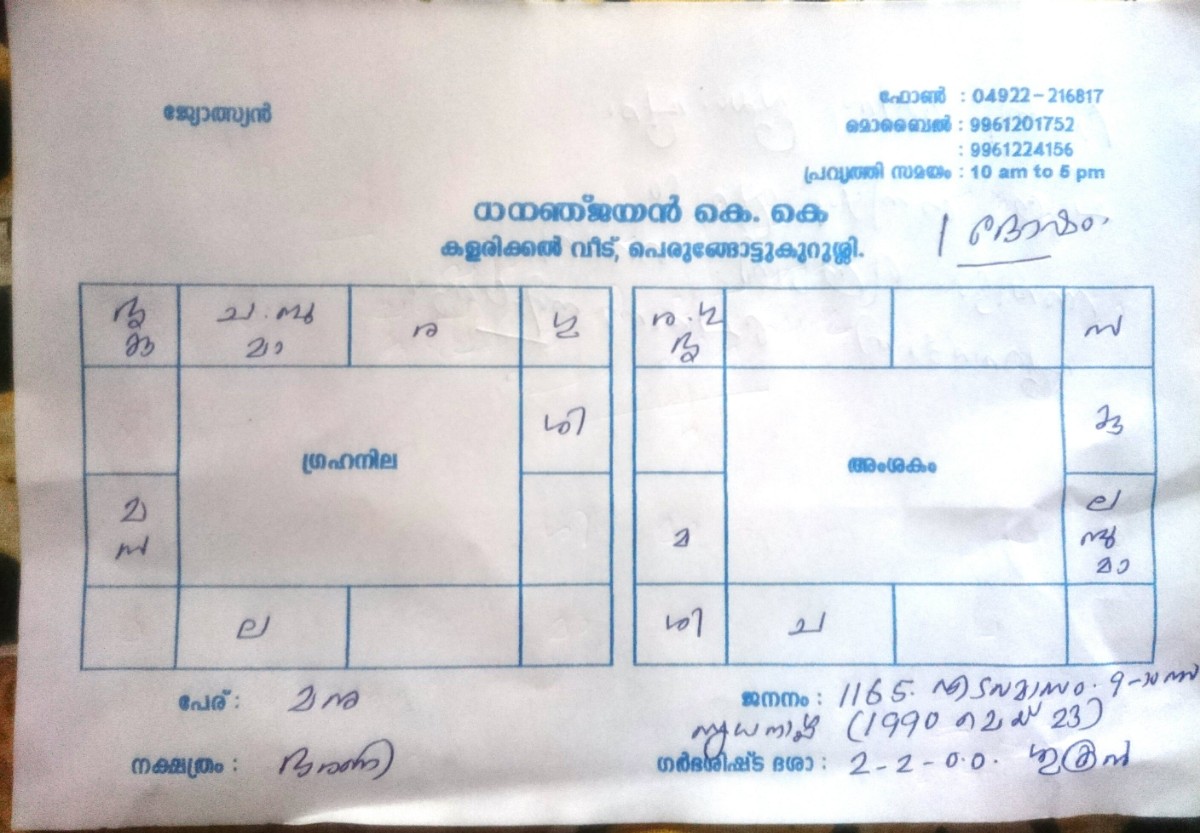 ജ്യോത്സ്യൻ
ഫോൺ : 04922-216817
മൊബൈൽ : 9961201752
: 9961224156
പ്രവൃത്തി സമയം : 10 am to 5 pm
ധനഞ്ജയൻ കെ. കെ
കളരിക്കൽ വീട്, പെരുങ്ങോട്ടുകുറുശ്ശി.
1 ദോഷം
ച . ബു
മാ
ര
ഗു
ശി
മ
സ
ല
ഗ്രഹനില
ര . ഗു
സ
കു
ല
ബു
മാ
മ
ശി
ച
അംശകം
പേര് : മനു
ജനനം : 1165 എടവമാസം . 9-ാം
ബുധനാഴ്ച (1990 മെയ് 23)
നക്ഷത്രം : ഭരണി
ഗർഭശിഷ്ട ദശാ : 2-2-00. ശുക്രൻ